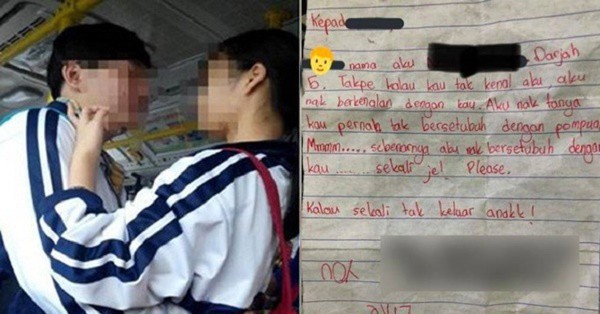 Kepad
nana aku Darjah
5. Takpe kalau kau tak kenal aku aku
nak berkenalan dengan kau. Aku nak tanya
kau pernah tak bersetubuh dengan pompuan,
sebenarnya aku nak bersetubuh dengan
kau ...... sekali je! Please.
Kalau sekali tak keluar anakk!